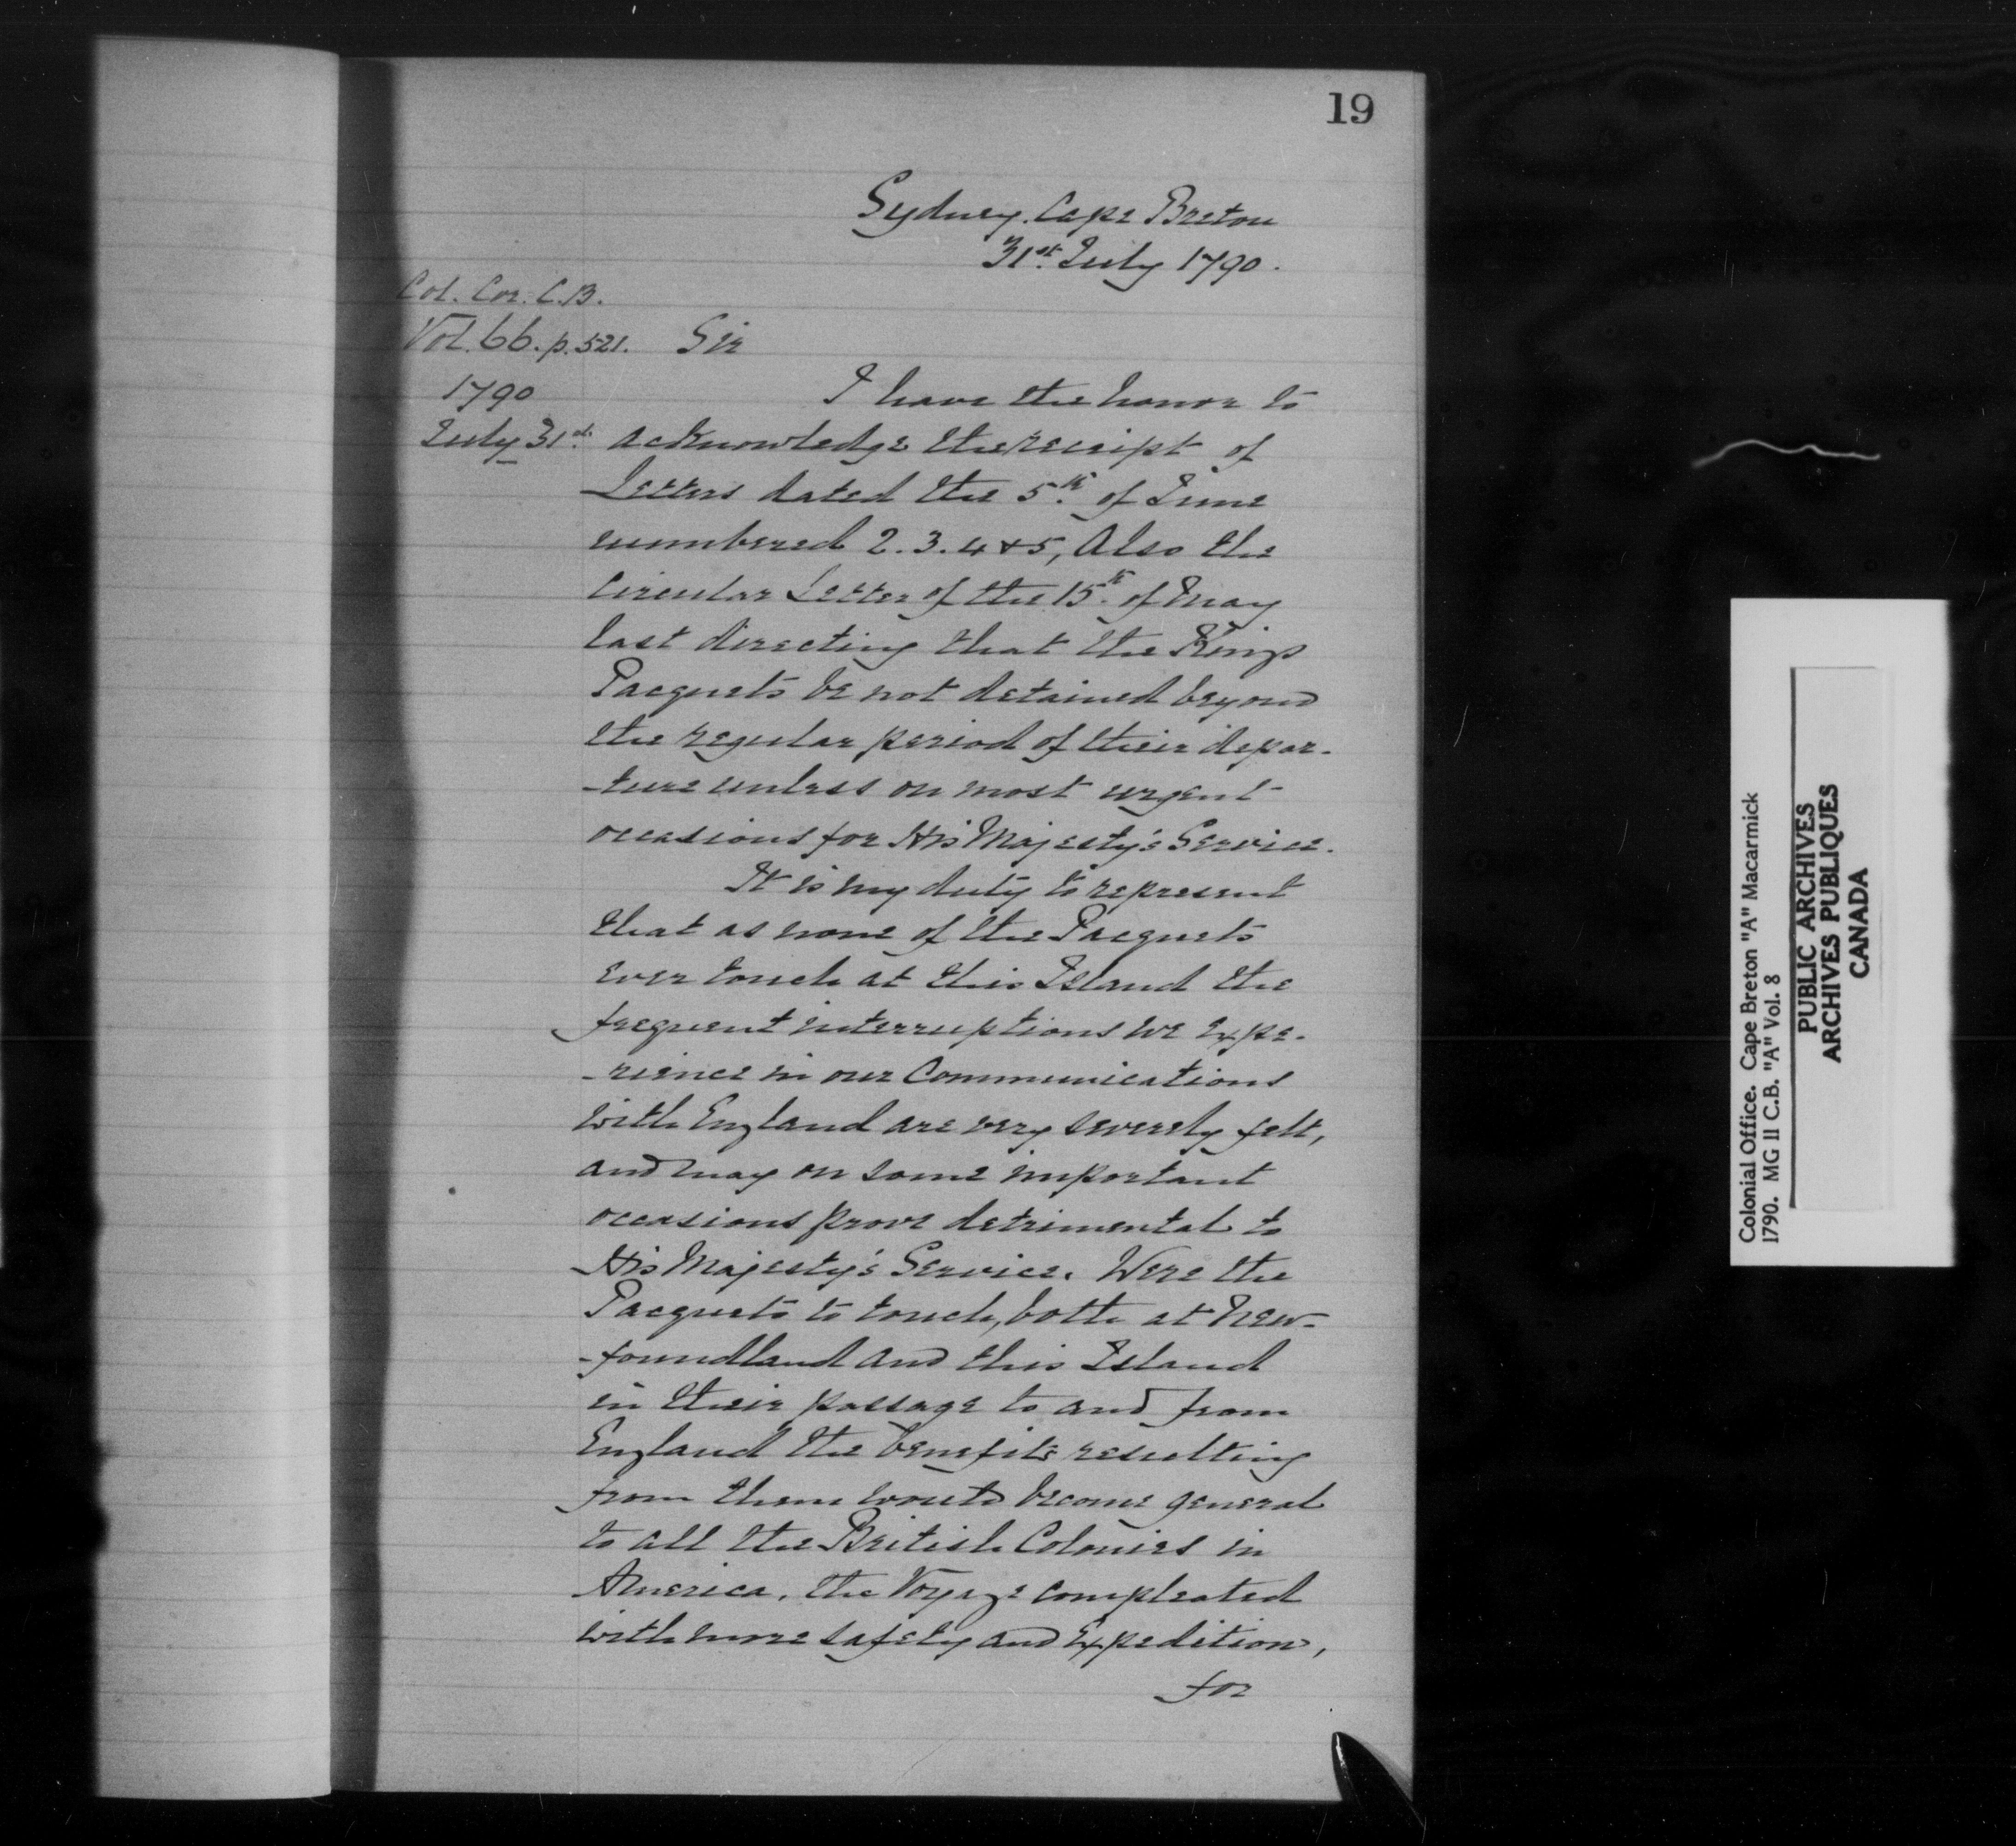 19
Sydney. Cape Breton
31st. July 1790.
Col. Cor. C.B.
Vol. 66. p. 521.
1790
July 31st.
Sir
I have the honor to
acknowledge the receipt of
Letters dated the 5th. of June
numbered 2. 3. 4 & 5, Also the
Circular Letter of the 15th. of May
last directing that the Kings
Pacquets be not detained beyond
the regular period of their depar-
-ture unless on most urgent
occasions for His Majesty's Service.
It is my duty to represent
that as none of the Pacquets
ever touch at this Island the
frequent interruptions we expe-
-rience in our Communications
with England are very severely felt,
and may on some important
occasions prove detrimental to
His Majesty's Service. Were the
Pacquets to touch, both at New-
-foundland and this Island
in their passage to and from
England the benefits resulting
from them would become general
to all the British Colonies in
America, the Voyage compleated
with more safety and Expedition,
for
Colonial Office. Cape Breton "A" Macarmick
1790. MG 11 C.B. "A" Vol. 8
PUBLIC ARCHIVES
ARCHIVES PUBLIQUES
CANADA